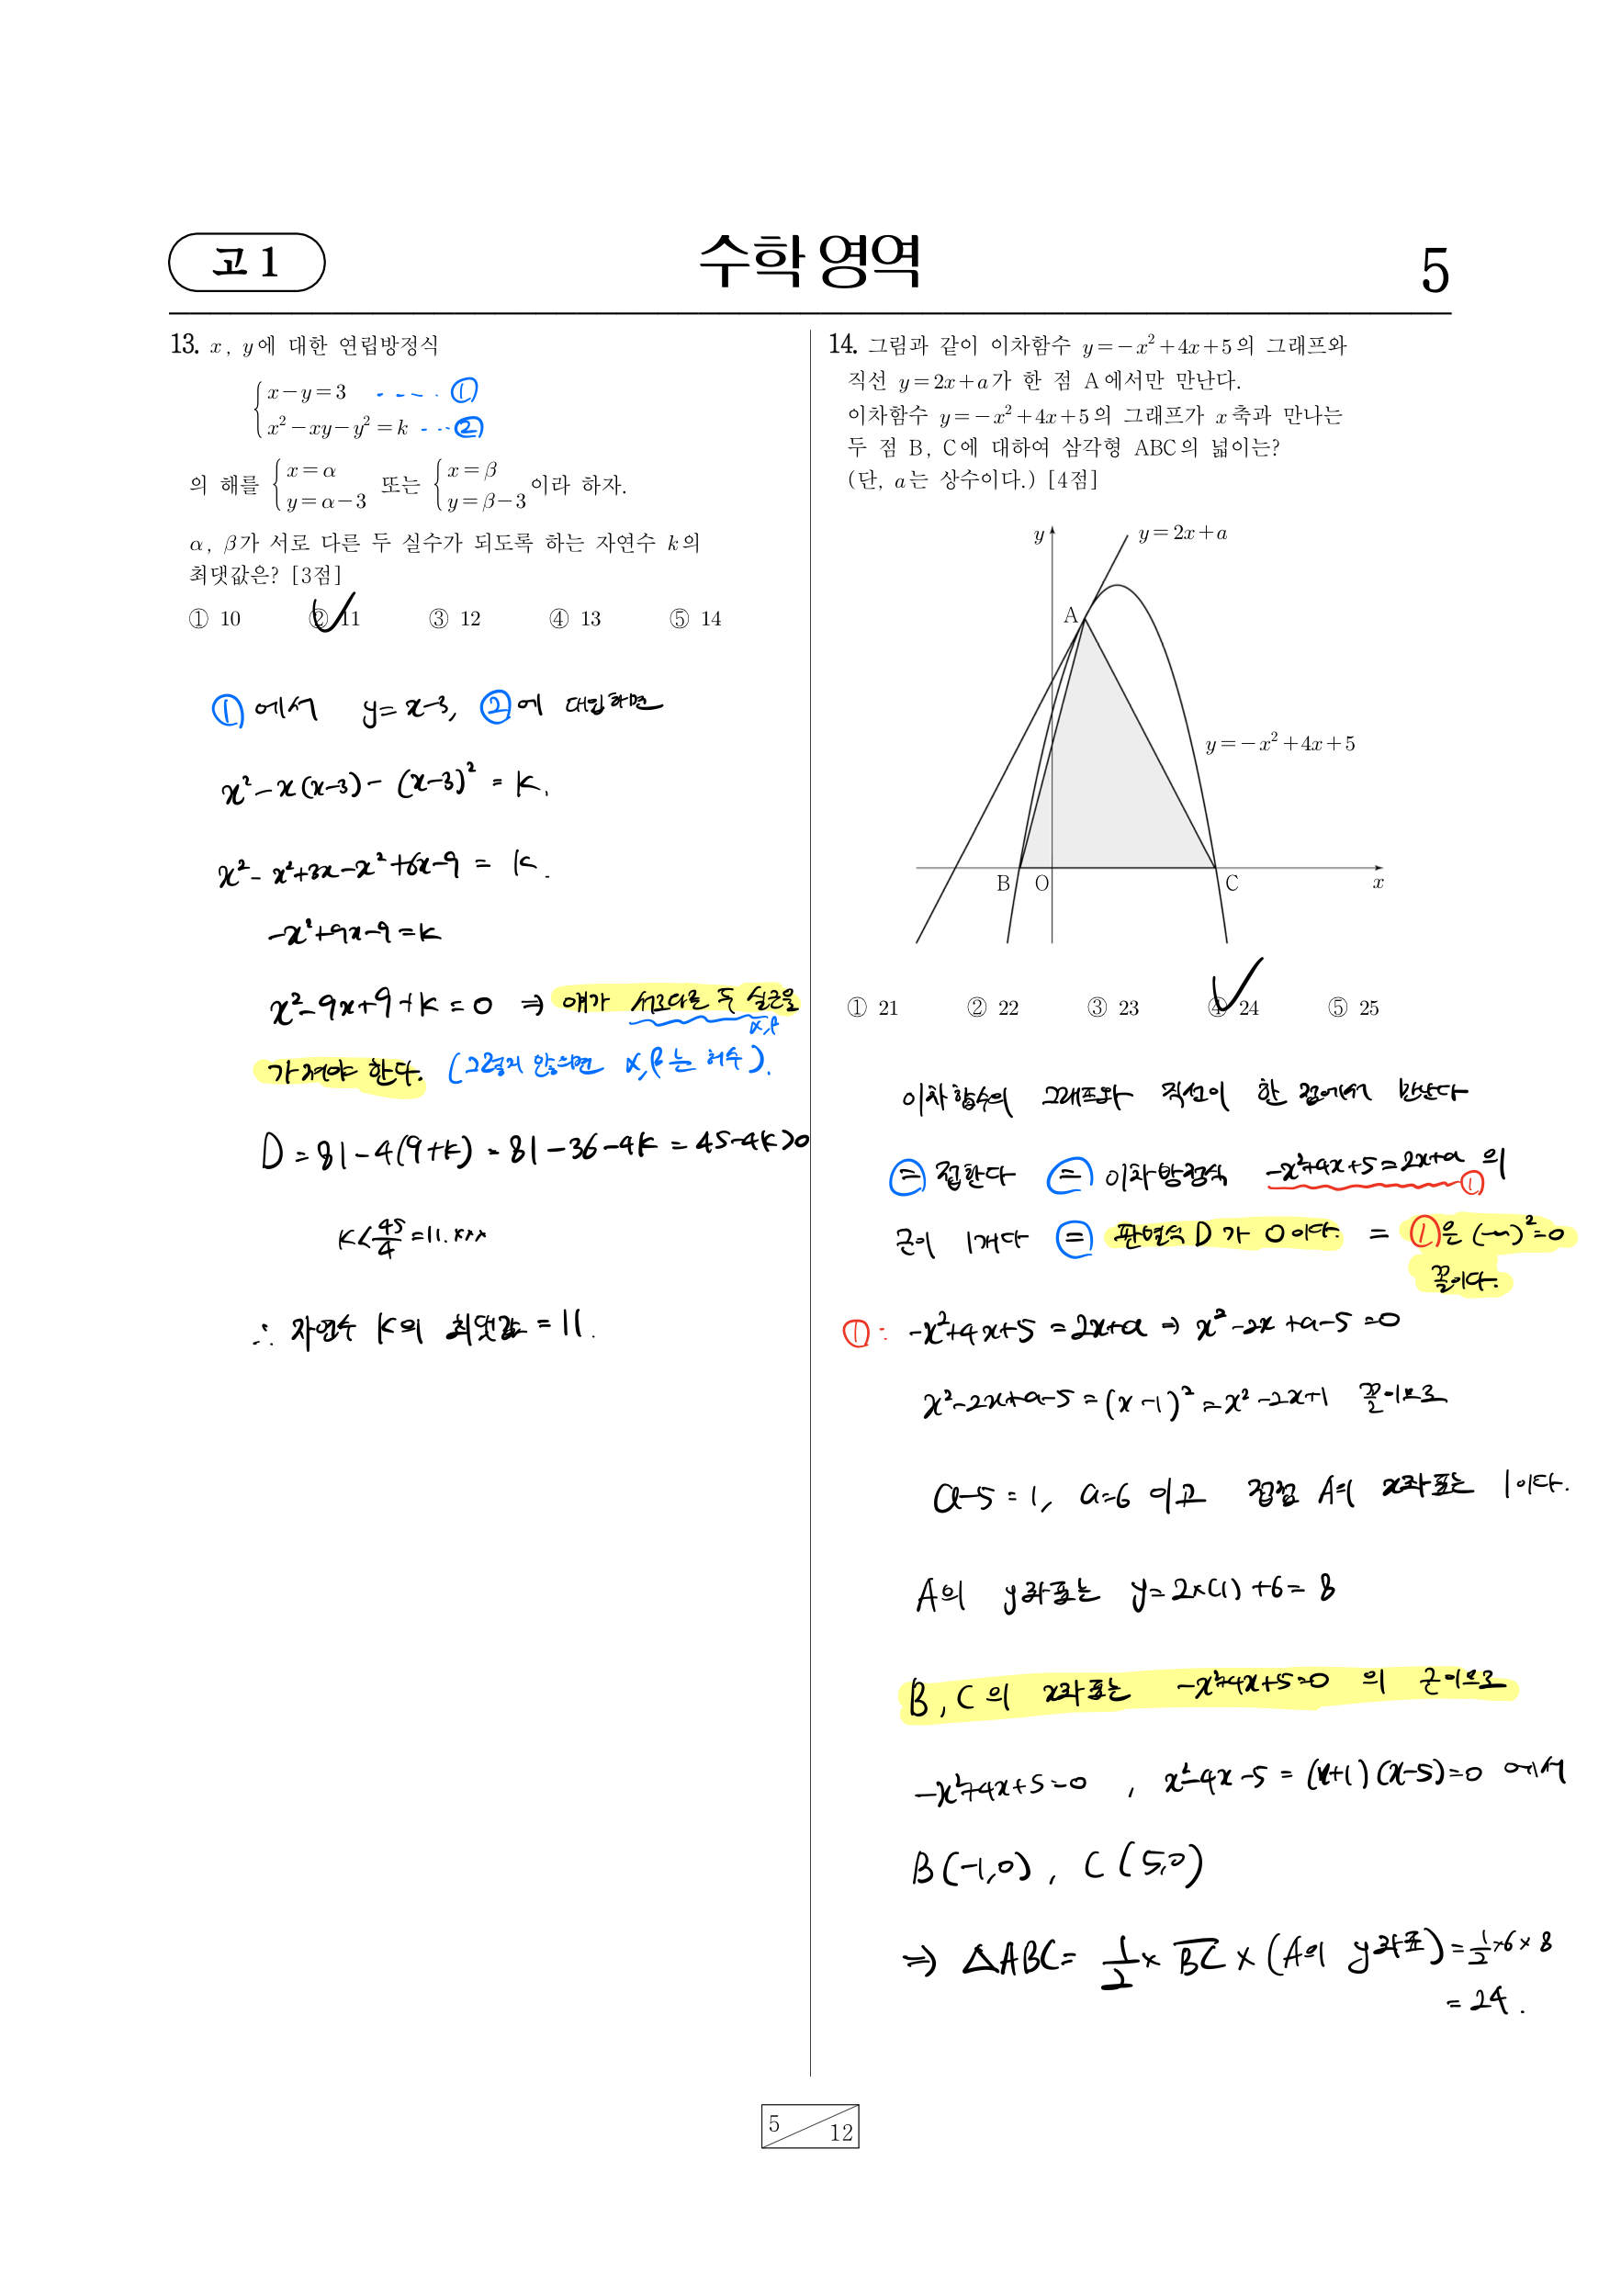 고 1
수학 영역
5
13. x, y에 대한 연립방정식
{ x-y=3 ----- ①
{ x²-xy-y²=k --- ②
의 해를 { x=α, y=α-3 또는 { x=β, y=β-3 이라 하자.
α, β가 서로 다른 두 실수가 되도록 하는 자연수 k의
최댓값은? [3점]
① 10 ② 11 ③ 12 ④ 13 ⑤ 14
① 에서 y=x-3, ②에 대입하면
x²-x(x-3)-(x-3)²=k.
x²-x²+3x-x²+6x-9=k.
-x²+9x-9=k
x²-9x+9+k=0 ⇒ 얘가 서로다른 두 실근을
α,β
가져야 한다. (그렇지 않으면 α,β는 허수).
D=81-4(9+k)=81-36-4k=45-4k>0
k<45/4=11.xxx
∴ 자연수 k의 최댓값=11.
14. 그림과 같이 이차함수 y=-x²+4x+5의 그래프와
직선 y=2x+a가 한 점 A에서만 만난다.
이차함수 y=-x²+4x+5의 그래프가 x축과 만나는
두 점 B, C에 대하여 삼각형 ABC의 넓이는?
(단, a는 상수이다.) [4점]
y
y=2x+a
A
y=-x²+4x+5
B O C x
① 21 ② 22 ③ 23 ④ 24 ⑤ 25
이차함수의 그래프와 직선이 한 점에서 만난다
= 접한다 = 이차방정식 -x²+4x+5=2x+a ① 의
근이 1개다 = 판별식 D가 0이다. = ①은 (~)²=0
꼴이다.
①: -x²+4x+5=2x+a ⇒ x²-2x+a-5=0
x²-2x+a-5=(x-1)²=x²-2x+1 꼴이므로
a-5=1, a=6 이고 접점 A의 x좌표는 1이다.
A의 y좌표는 y=2×(1)+6=8
B, C의 x좌표는 -x²+4x+5=0 의 근이므로
-x²+4x+5=0, x²-4x-5=(x+1)(x-5)=0 에서
B(-1,0), C(5,0)
⇒ △ABC=1/2×BC×(A의 y좌표)=1/2×6×8
=24.
5 12